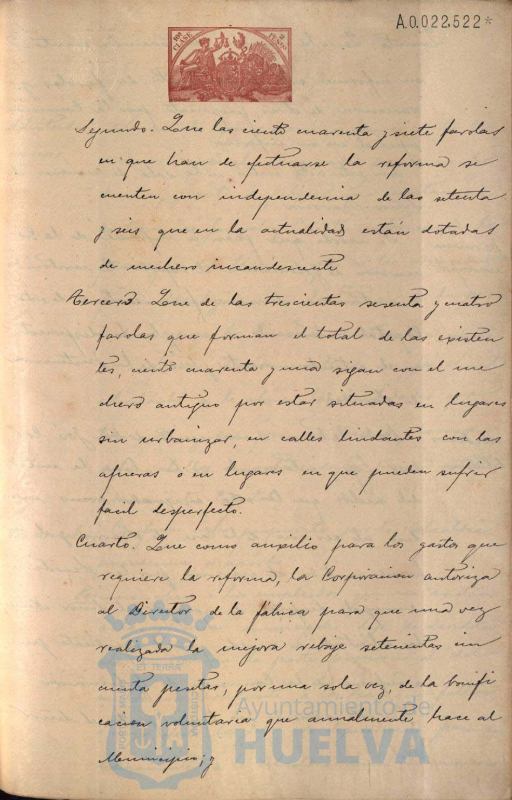 A.0.022.522*
10ª CLASE
2 PESETAS
Segundo. Que las ciento cuarenta y siete farolas
en que han de efectuarse la reforma se
cuenten con independencia de las setenta
y seis que en la actualidad están dotadas
de mechero incandescente
Tercero. Que de las trescientas sesenta y cuatro
farolas que forman el total de las existen
tes, ciento cuarenta y una sigan con el me
chero antiguo por estar situadas en lugares
sin urbanizar, en calles lindantes con las
afueras ó en lugares en que pueden sufrir
facil desperfecto.
Cuarto. Que como auxilio para los gastos que
requiere la reforma, la Corporacion autoriza
al Director de la fábrica para que una vez
realizada la mejora rebaje setecientas cin
cuenta pesetas, por una sola vez, de la bonifi
cacion voluntaria que anualmente hace al
Municipio; y
ET TERRA
Ayuntamiento de
HUELVA